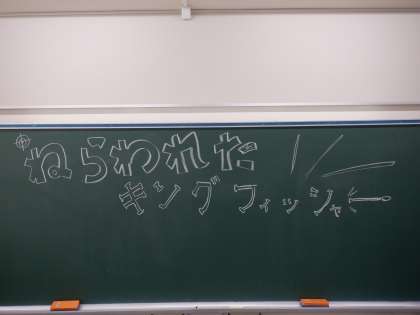 ねらわれた
キングフィッシャー